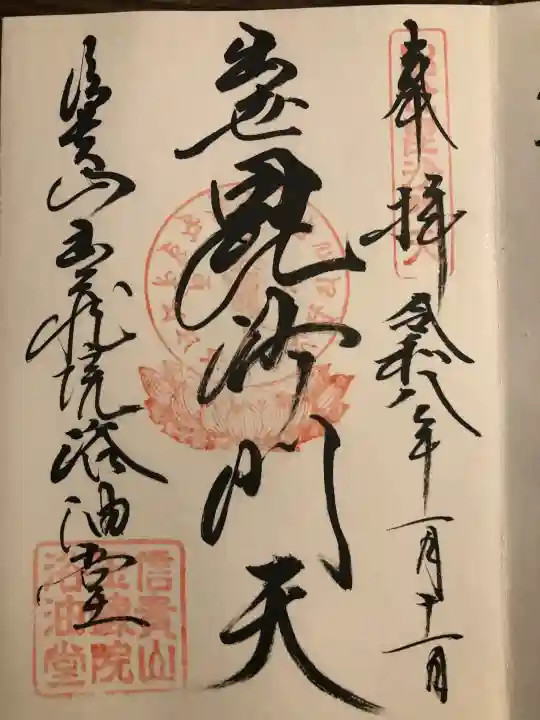 奉拝 令和八年一月十一日
出世毘沙門天
信貴山玉蔵院浴油堂
信貴山
玉蔵院
浴油堂